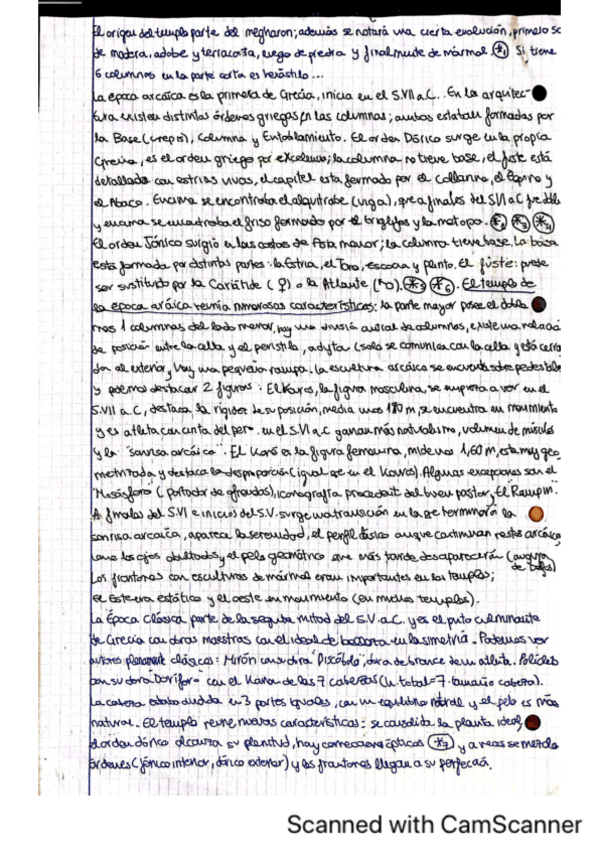 El origen del templo parte del megharon; además se notará una cierta evolución, primero se
de madera, adobe y terracota, luego de piedra y finalmente de mármol *1 Si tiene
6 columnas en la parte corta es hexástilo...
La época arcáica es la primera de Grecia, inicia en el S.VII a.C.. En la arquitec-
tura existen distintas órdenes griegas en las columnas; ambos estaban formadas por
la Base (crepis), columna y Entablamento. El orden Dórico surge en la propia
Grecia, es el orden griego por excelencia; la columna no tiene base, el fuste está
detallado con estrías vivas, el capitel esta formado por el collarino, el Equino y
el Ábaco. Encima se encontraba el alquitrabe (viga), que a finales del SVI a.C
y encima se encuadraba el friso formado por el triglifos y la metopa. *3 *4
El orden Jónico surgió en las costas de Asia menor; la columna tiene base. La basa
está formada por distintas partes: la Estria, el Toro, escocia y plinto. El fúste: puede
ser sustituido por la Cariátide (♀) o la Atlante (♂). *5 *6. El templo de
la época aráica reunía numerosas características: la parte mayor posee el doble
mas 1 columnas del lado menor, hay una división axial de columnas, existe una relación
de posición entre la cella y el peristilo, adyta (solo se comunica con la cella y está cerra
da al exterior, hay una pequeña rampa. La escultura arcáica se encuentra sobre pedestales
y podemos destacar 2 figuras: El Kuros, la figura masculina, se empieza a ver en el
S.VII a.C, destaca la rigidez de su posición, media unos 180 m, se encuentra en movimiento
y es atleta con cinta del pelo. en el S.VI a.C ganan más naturalismo, volumen de músculos
y la "sonrisa arcáica". El Koré es la figura femenina, mide unos 1,60 m, esta muy geo
metrizada y destaca la desproporción (igual que en el Kouros). Algunas excepciones son el
"Mosósforo" (portador de ofrendas), iconografía procedente del buen pastor, El "Rampin".
A finales del S.VI e inicios del S.V. surge una transición en la que terminará la
sonrisa arcaica, aparece la serenidad, el perfil clásico aunque continuan restos arcáicos
como los ojos abultados y el pelo geométrico que más tarde desaparecerán (auriga
de Delfos)
Los frontones con esculturas de mármol eran importantes en los templos;
el Este era estático y el oeste en movimiento (en muchos templos).
La Época Clásica parte de la segunda mitad del S.V. a.C. y es el punto culminante
de Grecia con obras maestras con el ideal de belleza en la simetría. Podemos ver
autores plenamente clásicos: Mirón con su obra "Discóbolo", obra de bronce de un atleta. Policleto
con su obra "Dorífero" con el Kanon de las 7 cabezas (la total = 7 · tamaño cabeza).
La cabeza estaba dividida en 3 partes iguales, con un equilibrio natural y el pelo es más
natural. El templo reune nuevas características: se consolida la planta ideal,
el orden dórico alcanza su plenitud, hay correcciones ópticas *7 y a veces se mezcla
órdenes (jónico interior, dórico exterior) y los frontones llegan a su perfección.
Scanned with CamScanner